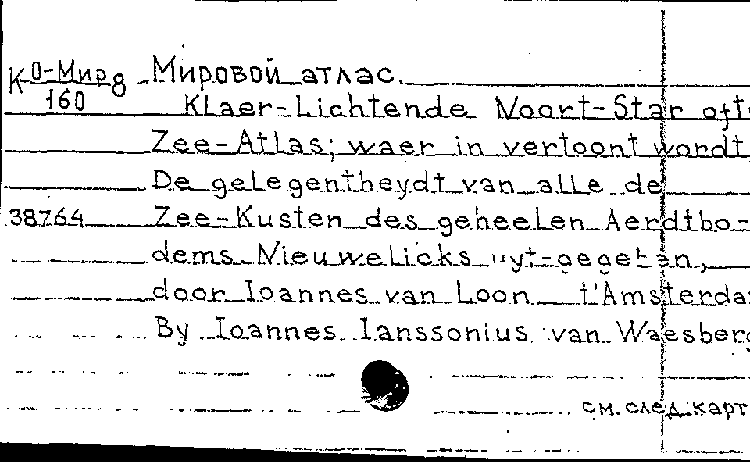 К О-Мир 8 Мировой атлас.
160 Klaer-Lichtende Noort-Star oft
Zee-Atlas; waer in vertoont wordt
De gelegentheydt van alle de
38764 Zee-Kusten des geheelen Aerdtbo-
dems Nieuwelicks uyt-gegeben,
door Ioannes van Loon t'Amsterda
By Ioannes Ianssonius van Waesberg
см. след. карт